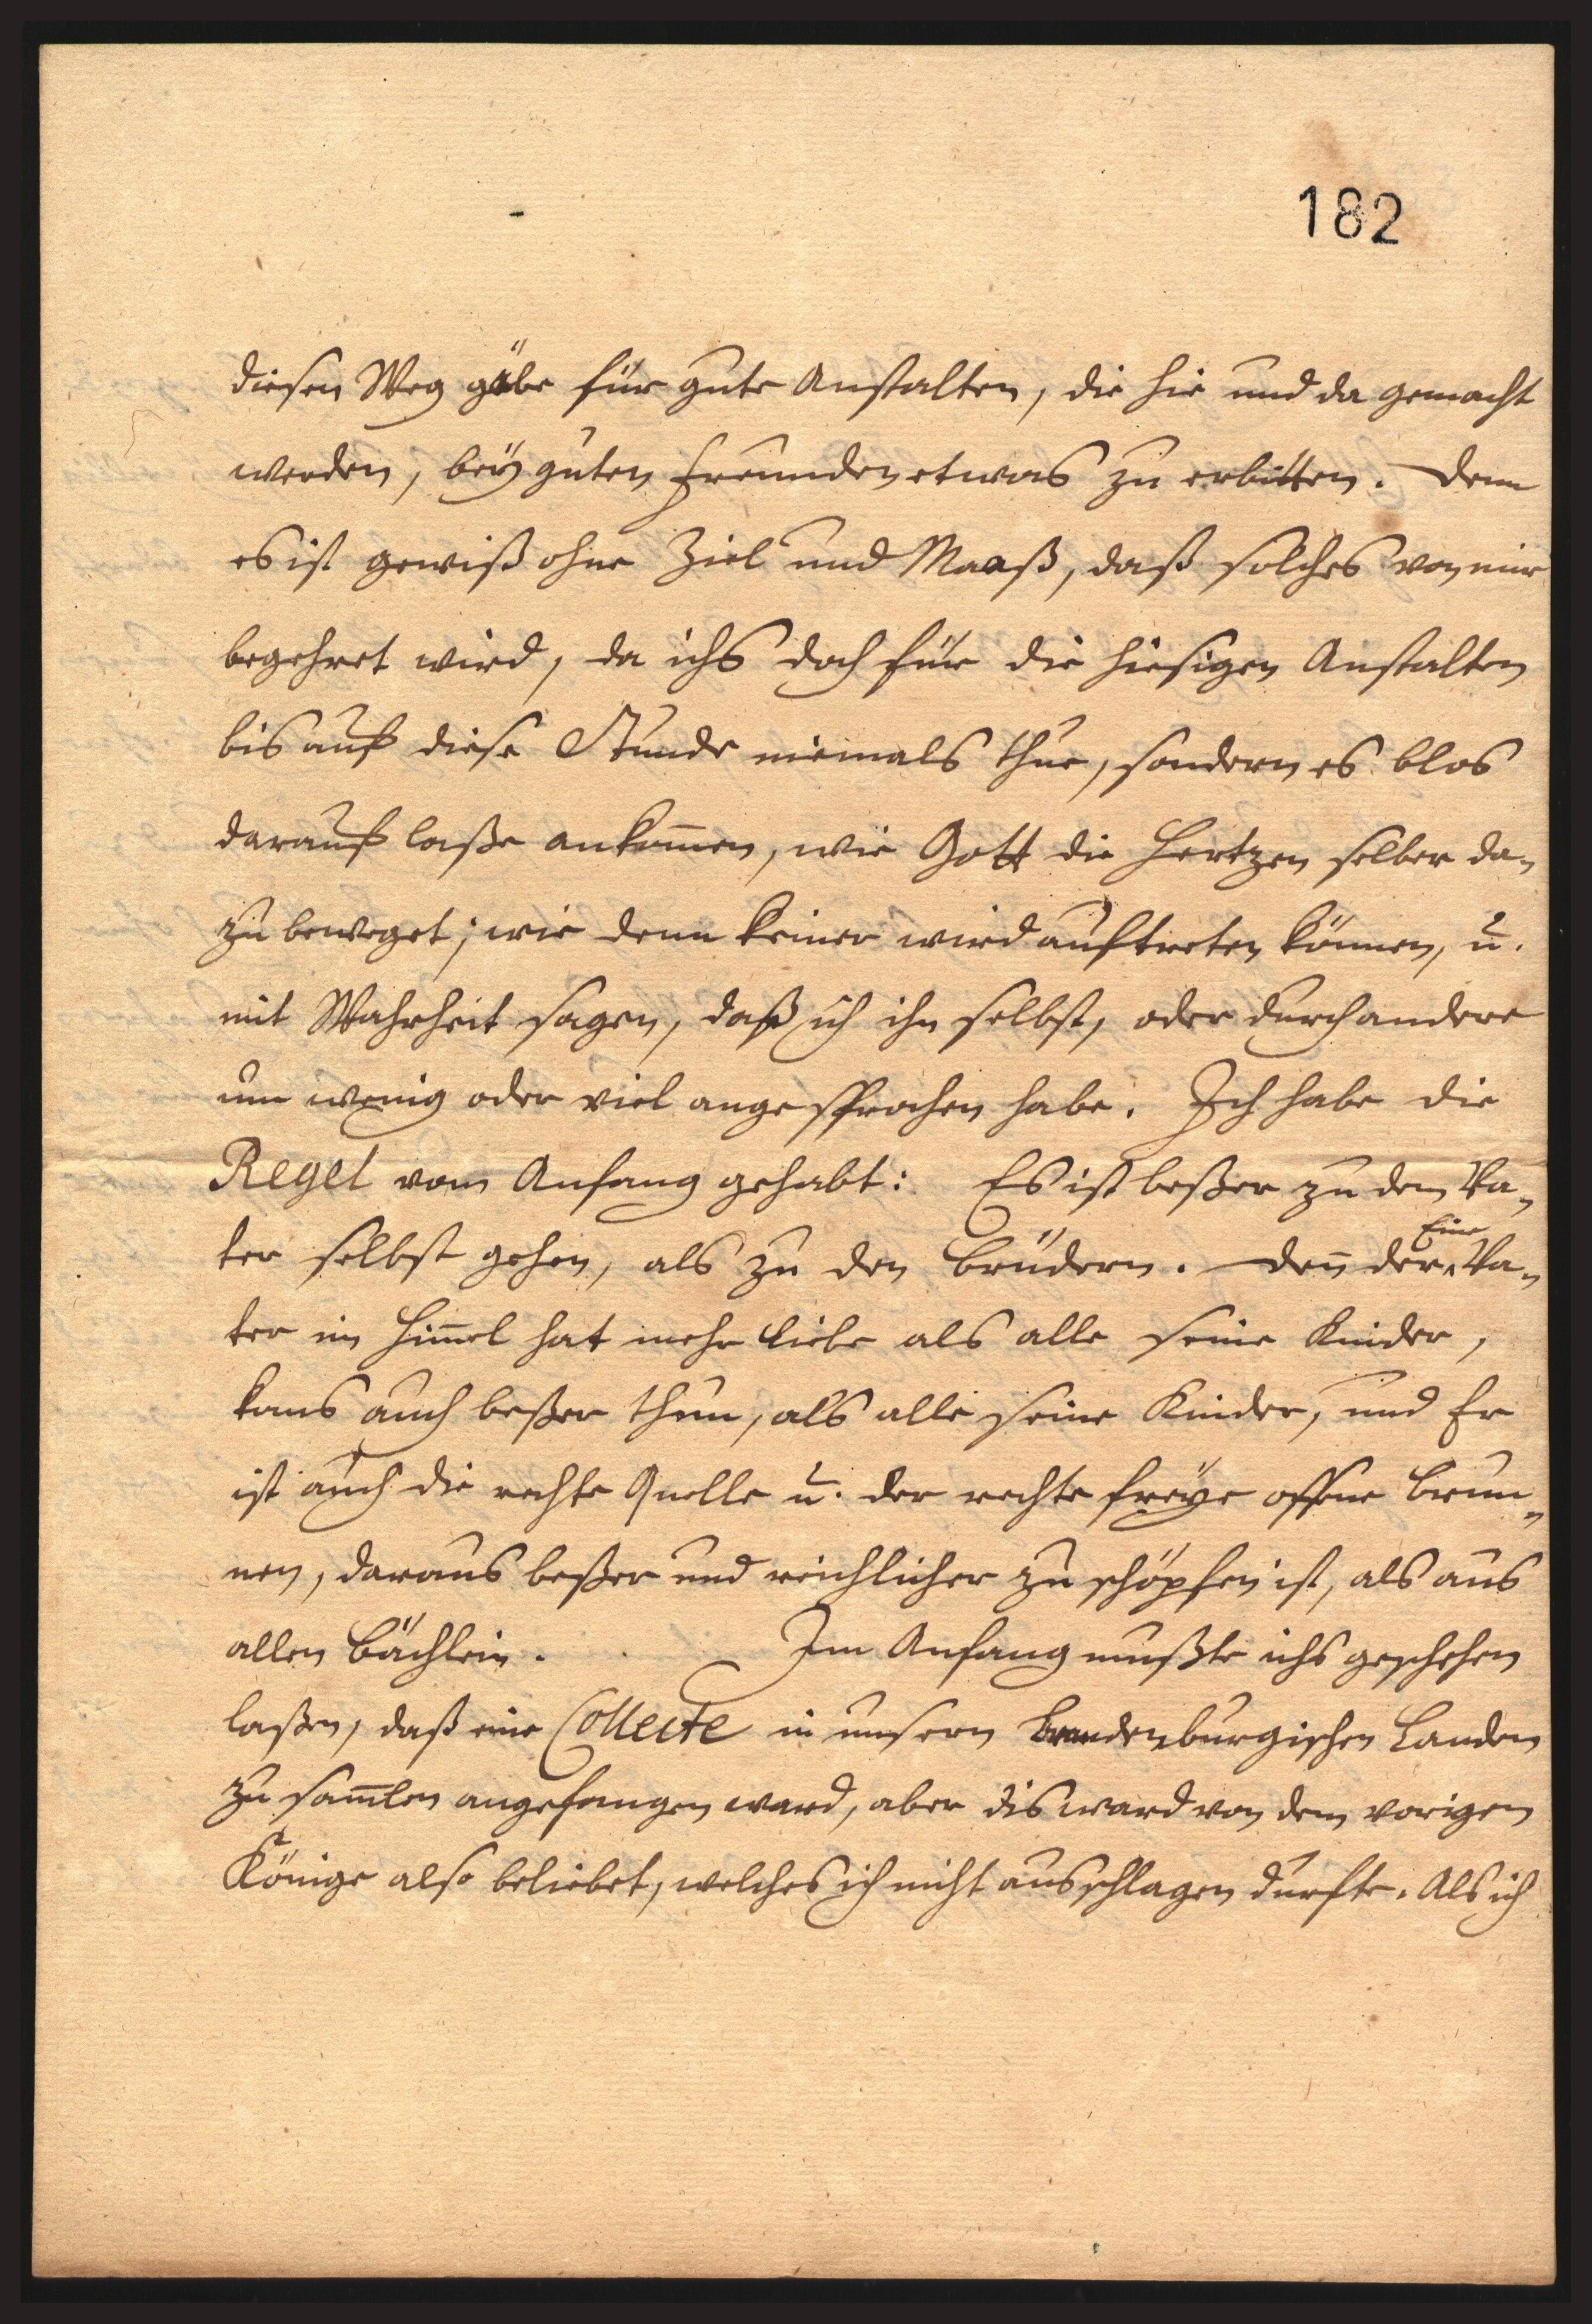 182
diesen Weg gäbe für gute Anstalten, die hie und da gemacht
werden, bey guten Freunden etwas zu erbitten. Denn
es ist gewiß ohne Ziel und Maaß, daß solches von mir
begehret wird, da ichs doch für die hiesigen Anstalten
bis auf diese Stunde niemals thue, sondern es blos
darauf laße ankom̄en, wie Gott die Hertzen selber da-
zu beweget; wie denn keiner wird auftreten können, u.
mit Wahrheit sagen, daß ich ihn selbst, oder durch andere
um wenig oder viel angesprochen habe. Ich habe die
Regel vom Anfang gehabt: Es ist beßer zu dem Va-
Eine
ter selbst gehen, als zu den Brüdern. Den̄ der Va-
ter im Him̄el hat mehr Liebe als alle seine Kinder,
kans auch beßer thun, als alle seine Kinder, und Er
ist auch die rechte Quelle u. der rechte freye offene Brun-
nen, daraus beßer und reichlicher zu schöpfen ist, als aus
allen Bächlein. Im Anfang mußte ichs geschehen
laßen, daß eine Collecte in unsern Brandenburgischen Landen
zu sam̄len angefangen ward, aber dis ward von dem vorigen
Könige also beliebet, welches ich nicht ausschlagen durfte. Als ich